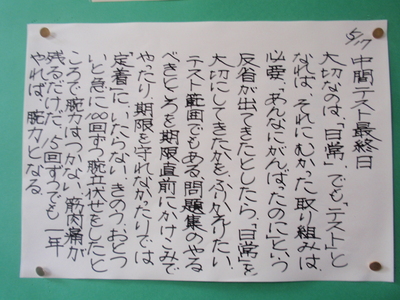 5/17
中間テスト最終日
大切なのは、「日常」。でも、「テスト」と
なれば、それにむかった取り組みは、
必要。「あんなにがんばったのに」という
反省が出てきたとしたら、「日常」を
大切にしてきたかを、ふりかえりたい。
テスト範囲でもある、問題集のやる
べきところを期限直前にかけこみで
やったり、期限を守れなかったりでは
「定着」に、いたらない。きのう、おとつ
いと急に100回ずつ腕立ふせをしたと
ころで腕力はつかない。筋肉痛が
残るだけだ。15回ずつでも一年
やれば、腕力となる